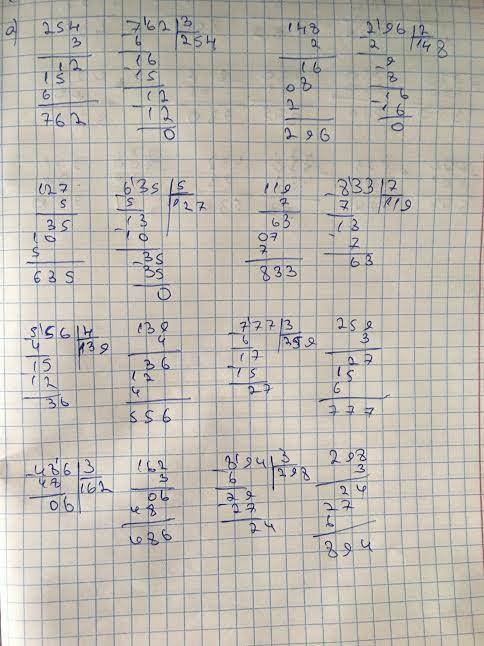 a) 254   762 | 3   148   296 | 2
3   6 | 254   2   2 | 148
12   16   16   9
15   15   08   8
6   12   2   16
762   12   296   16
0   0
127   635 | 5   119   833 | 7
5   5 | 127   7   7 | 119
35   13   63   13
10   10   07   7
5   35   7   63
635   35   833
0
556 | 4   139   777 | 3   259
4 | 139   4   6 | 259   3
15   36   17   27
12   12   15   15
36   4   27   6
556   777
486 | 3   162   894 | 3   298
48 | 162   3   6 | 298   3
06   06   29   24
48   27   27
486   24   6
894